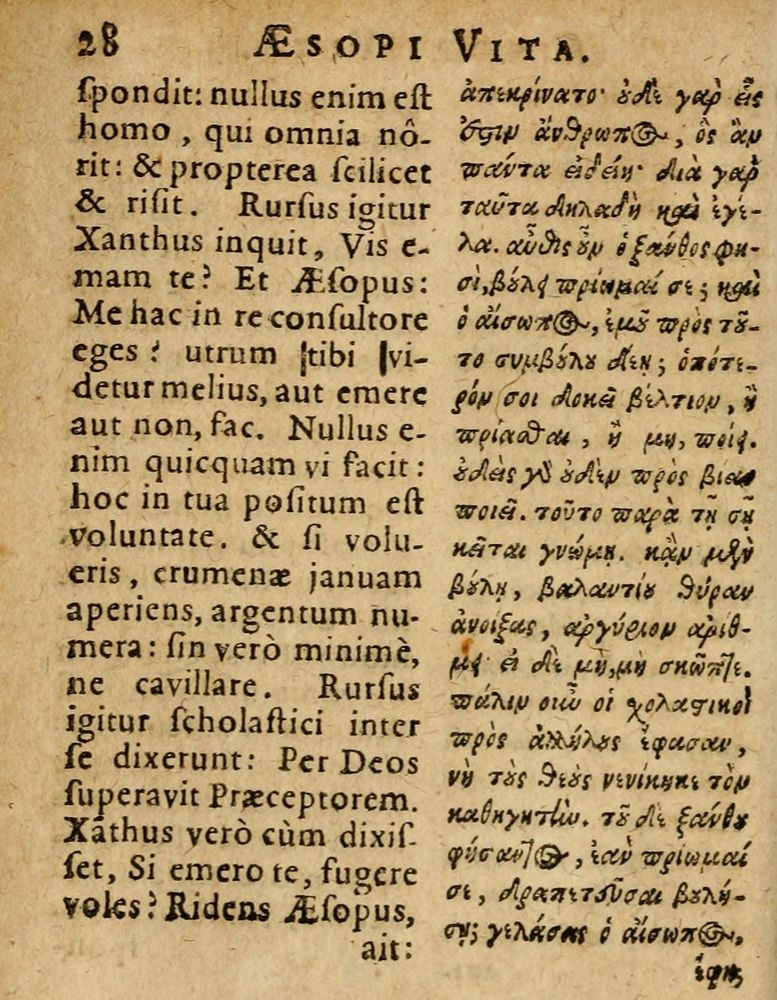 28 ÆSOPI VITA.
ſpondit: nullus enim eſt
homo, qui omnia nô-
rit: & propterea ſcilicet
& riſit. Rurſus igitur
Xanthus inquit, Vis e-
mam te? Et Æſopus:
Me hac in re conſultore
eges? utrum tibi vi-
detur melius, aut emere
aut non, fac. Nullus e-
nim quicquam vi facit:
hoc in tua poſitum eſt
voluntate. & ſi volu-
eris, crumenæ januam
aperiens, argentum nu-
mera: ſin verò minimè,
ne cavillare. Rurſus
igitur ſcholaſtici inter
ſe dixerunt: Per Deos
ſuperavit Præceptorem.
Xāthus verò cùm dixiſ-
ſet, Si emero te, fugere
voles? Ridens Æſopus,
ait:
ἀπεκρίνατο· οὐδὲ γὰρ εἷς
ἔστιν ἄνθρωπος, ὃς ἂν
πάντα εἰδείη· διὰ γὰρ
ταῦτα δηλαδὴ καὶ ἐγέ-
λα. αὖθις οὖν ὁ ξάνθος φη-
σὶ, βούλει πρίωμαί σε; καὶ
ὁ αἴσωπος, ἐμοῦ πρὸς τοῦ-
το συμβούλου δέῃ; ὁπότε-
ρόν σοι δοκεῖ βέλτιον, ἢ
πρίασθαι, ἢ μὴ, ποίει.
οὐδεὶς γὰρ οὐδὲν πρὸς βίαν
ποιεῖ. τοῦτο παρὰ τῇ σῇ
κεῖται γνώμῃ. κἂν μὲν
βούλῃ, βαλαντίου θύραν
ἀνοίξας, ἀργύριον ἀρίθ-
μει· εἰ δὲ μὴ, μὴ σκῶπτε.
πάλιν οὖν οἱ σχολαστικοὶ
πρὸς ἀλλήλους ἔφασαν,
νὴ τοὺς θεοὺς νενίκηκε τὸν
καθηγητήν. τοῦ δὲ ξάνθου
φήσαντος, ἐὰν πρίωμαί
σε, δραπετεῦσαι βουλή-
σῃ; γελάσας ὁ αἴσωπος,
ἔφη,